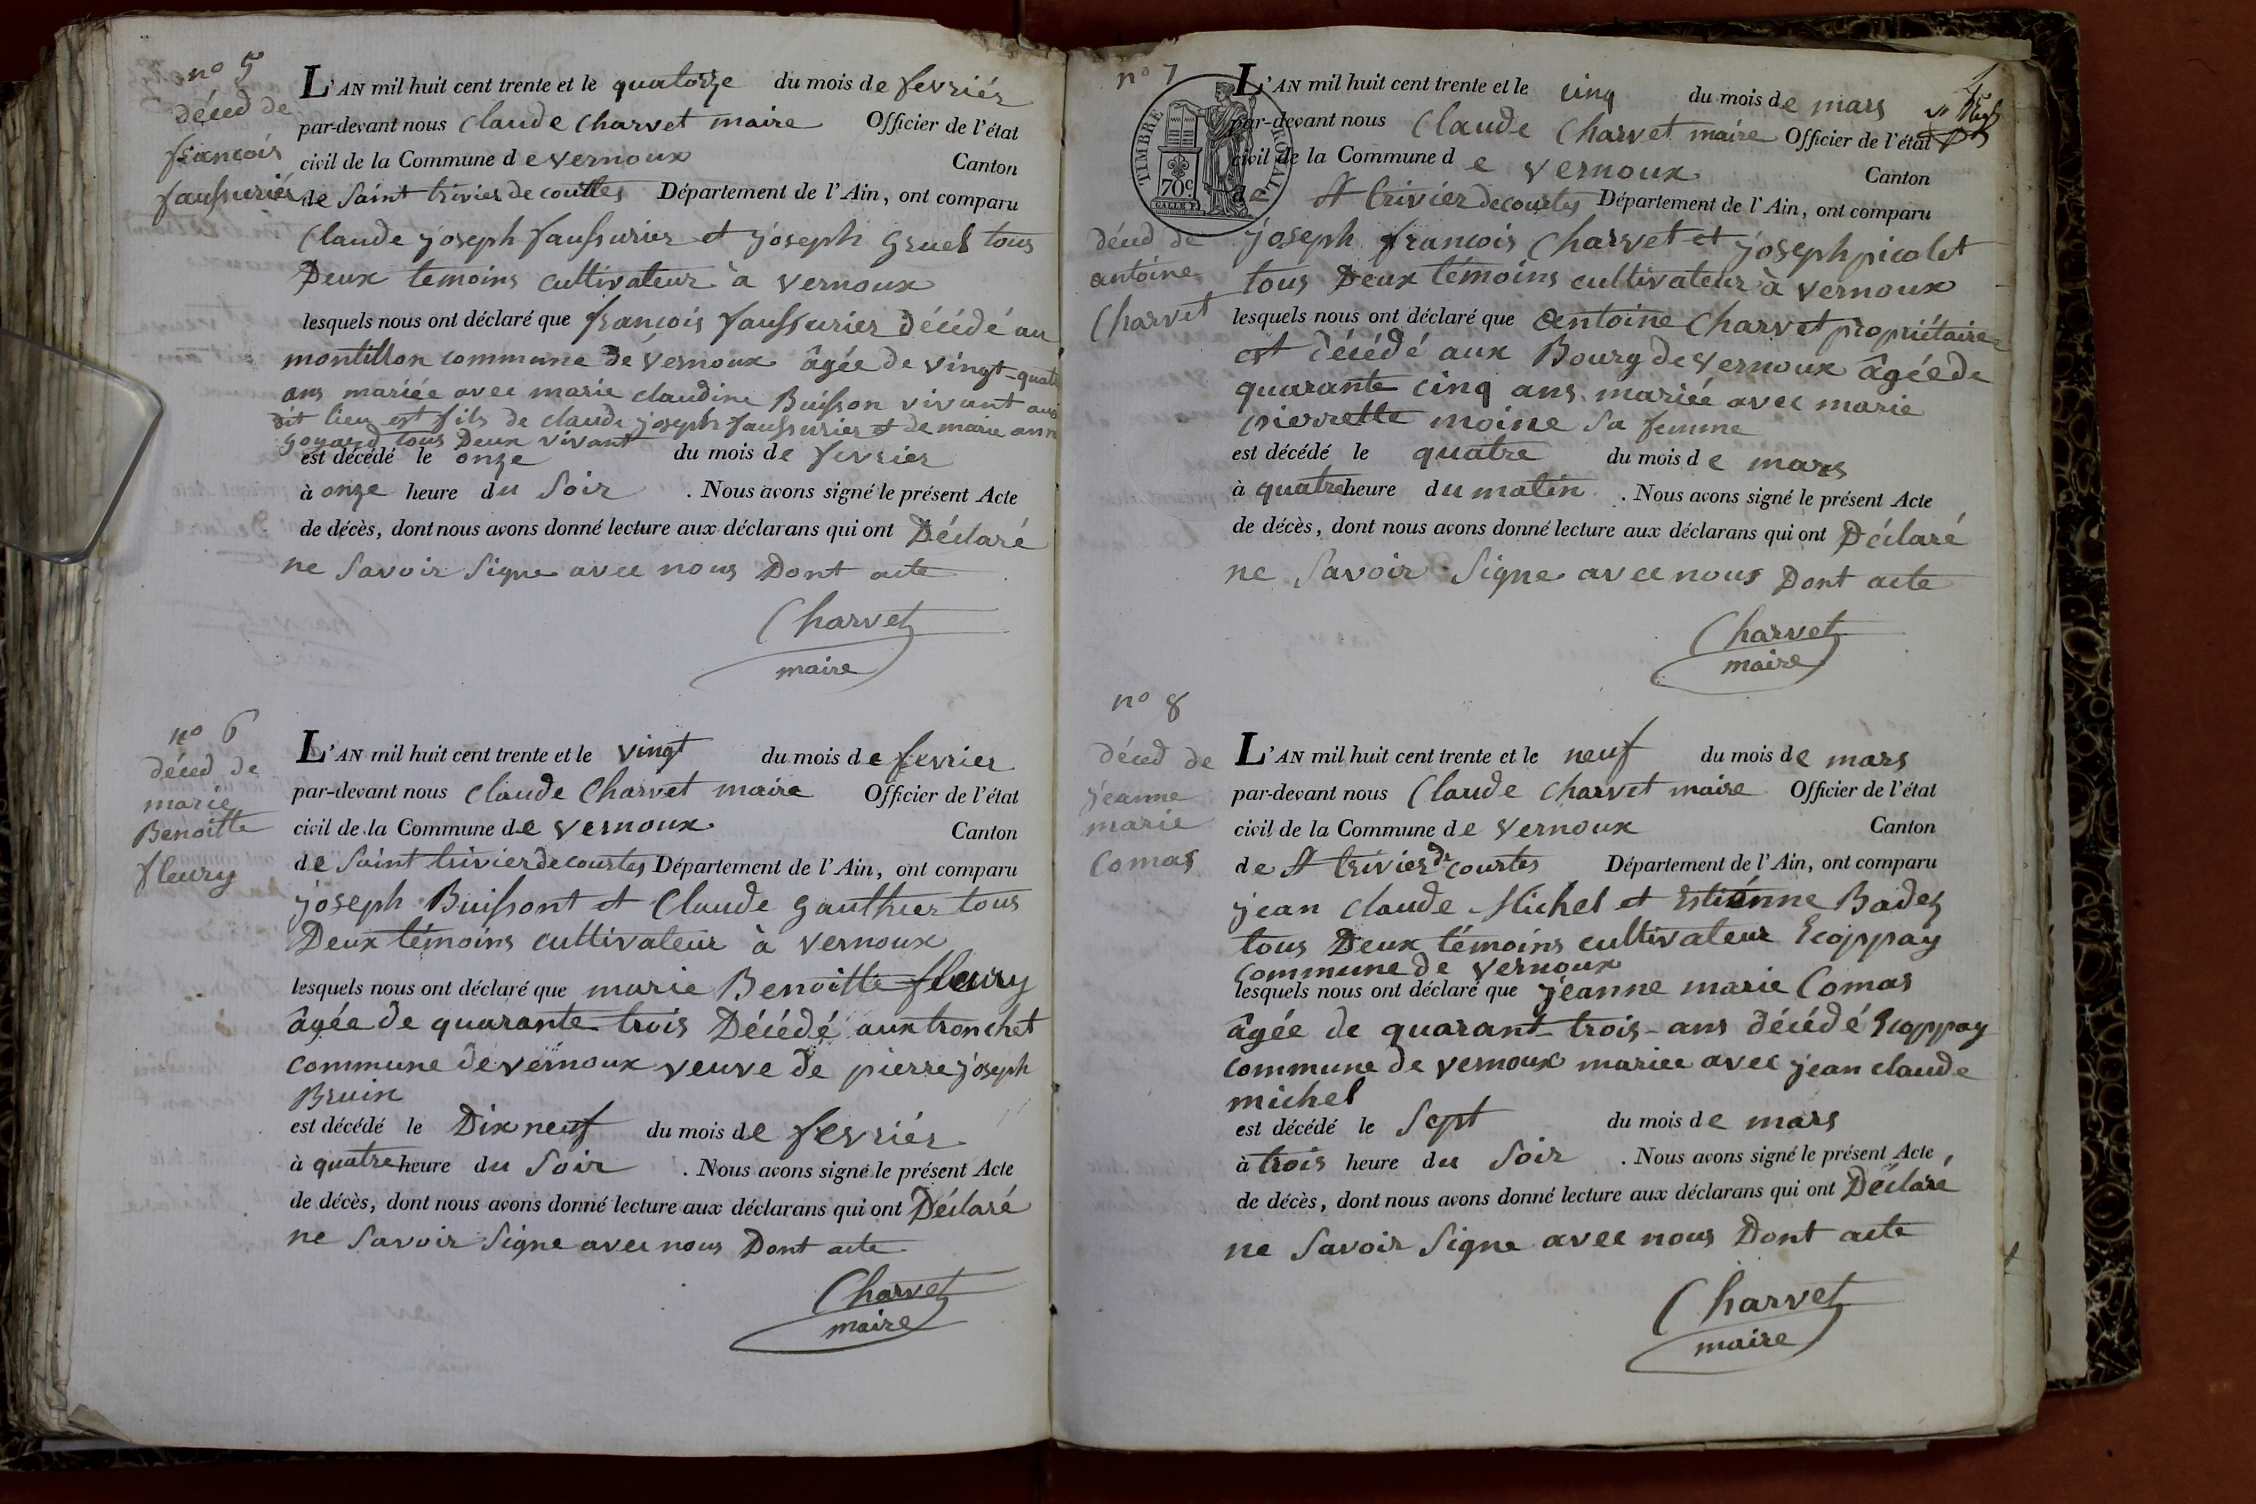 n° 5
décéd de
françois
faussurier
L'AN mil huit cent trente et le quatorze du mois de fevriér
par-devant nous Claude Charvet maire Officier de l'état
civil de la Commune de vernoux Canton
de Saint trivier de courtes Département de l'Ain, ont comparu
Claude joseph faussurier et joseph Gruel tous
Deux temoins cultivateur à vernoux
lesquels nous ont déclaré que françois faussurier décédé au
montillon commune de vernoux âgée de vingt-quatre
ans mariée avec marie claudine Buisson vivant au
dit lieu est fils de claude joseph faussurier et de marie anne
goyard tous Deux vivant
est décédé le onze du mois de fevrier
à onze heure du Soir . Nous avons signé le présent Acte
de décès, dont nous avons donné lecture aux déclarans qui ont Déclaré
ne Savoir Signe avec nous Dont acte
Charvet
maire
n° 6
décéd de
marie
Benoitte
fleury
L'AN mil huit cent trente et le vingt du mois de fevrier
par-devant nous Claude Charvet maire Officier de l'état
civil de la Commune de vernoux Canton
de Saint trivier de courtes Département de l'Ain, ont comparu
joseph Buissont et Claude gauthier tous
Deux témoins cultivateur à vernoux
lesquels nous ont déclaré que marie Benoitte fleury
âgée de quarante trois Décédé aux tronchet
commune de vernoux veuve de pierre joseph
Bruin
est décédé le Dix neuf du mois de fevriér
à quatre heure du Soir . Nous avons signé le présent Acte
de décès, dont nous avons donné lecture aux déclarans qui ont Déclaré
ne Savoir Signe avec nous Dont acte
Charvet
maire
n° 7
TIMBRE ROYAL
70c
décéd de
antoine
Charvet
L'AN mil huit cent trente et le cinq du mois de mars
par-devant nous Claude Charvet maire Officier de l'état
civil de la Commune de vernoux Canton
de St trivier de courtes Département de l'Ain, ont comparu
joseph françois Charvet et joseph picolet
tous Deux témoins cultivateur à vernoux
lesquels nous ont déclaré que Antoine Charvet propriétaire
est décédé aux Bourg de vernoux âgée de
quarante cinq ans mariée avec marie
pierrette moine sa femme
est décédé le quatre du mois de mars
à quatre heure du matin . Nous avons signé le présent Acte
de décès, dont nous avons donné lecture aux déclarans qui ont Déclaré
ne Savoir Signe avec nous Dont acte
Charvet
maire
n° 8
décéd de
jeanne
marie
Comas
L'AN mil huit cent trente et le neuf du mois de mars
par-devant nous Claude Charvet maire Officier de l'état
civil de la Commune de vernoux Canton
de St trivier de courtes Département de l'Ain, ont comparu
jean claude Michel et Estiénne Badez
tous Deux témoins cultivateur Ecoppay
commune de vernoux
lesquels nous ont déclaré que jeanne marie Comas
âgée de quarant trois ans décédé Ecoppay
commune de vernoux mariee avec jean claude
michel
est décédé le Sept du mois de mars
à trois heure du Soir . Nous avons signé le présent Acte
de décès, dont nous avons donné lecture aux déclarans qui ont Déclaré
ne Savoir Signe avec nous Dont acte
Charvet
maire